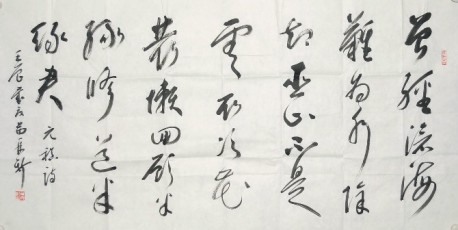 曾經滄海
難為水除
却巫山不是
雲取次花
叢懶回顧半
緣修道半
緣君
元稹詩
壬辰